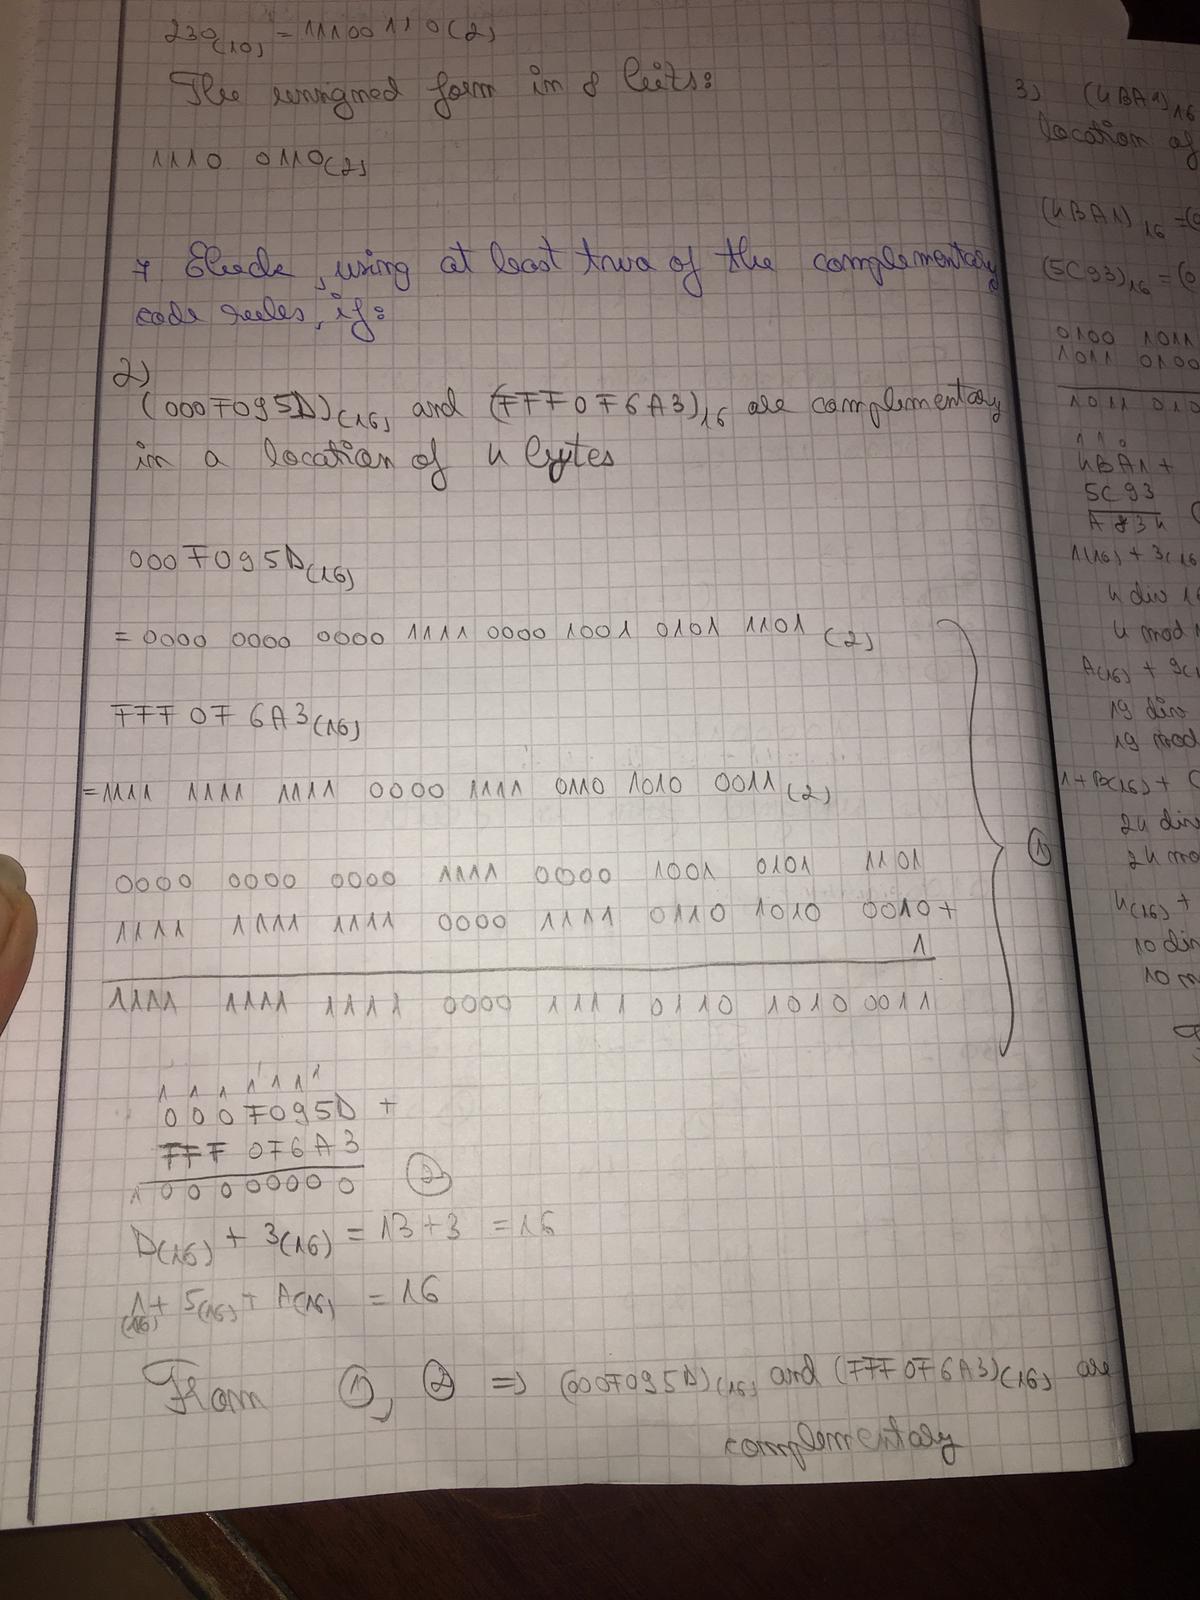 230(10) = 11100110(2)
The unsigned form in 8 bits:
1110 0110(2)
7 Check, using at least two of the complementary
code rules, if:
2)
(000F095D)(16) and (FFF0F6A3)16 are complementary
in a location of 4 bytes
000F095D(16)
= 0000 0000 0000 1111 0000 1001 0101 1101 (2)
FFF0F6A3(16)
= 1111 1111 1111 0000 1111 0110 1010 0011 (2)
0000 0000 0000 1111 0000 1001 0101 1101
1111 1111 1111 0000 1111 0110 1010 0010 +
1
1111 1111 1111 0000 1111 0110 1010 0011
1
1 1 1 1 1 1 1
000F095D +
FFF0F6A3
100000000 2
D(16) + 3(16) = 13 + 3 = 16
1(16) + 5(16) + A(16) = 16
From 1, 2 => (000F095D)(16) and (FFF0F6A3)(16) are
complementary
3) (4BA1)16
location of
(4BA1)16 = (0
(5C93)16 = (0
0100 1011
1011 0100
1011 010
1 1 0
4BA1 +
5C93
A834
1(16) + 3(16
4 div 1
4 mod 1
A(16) + 9(1
19 div
19 mod
1 + B(16) + C
24 div
24 mo
4(16) +
10 div
10 m